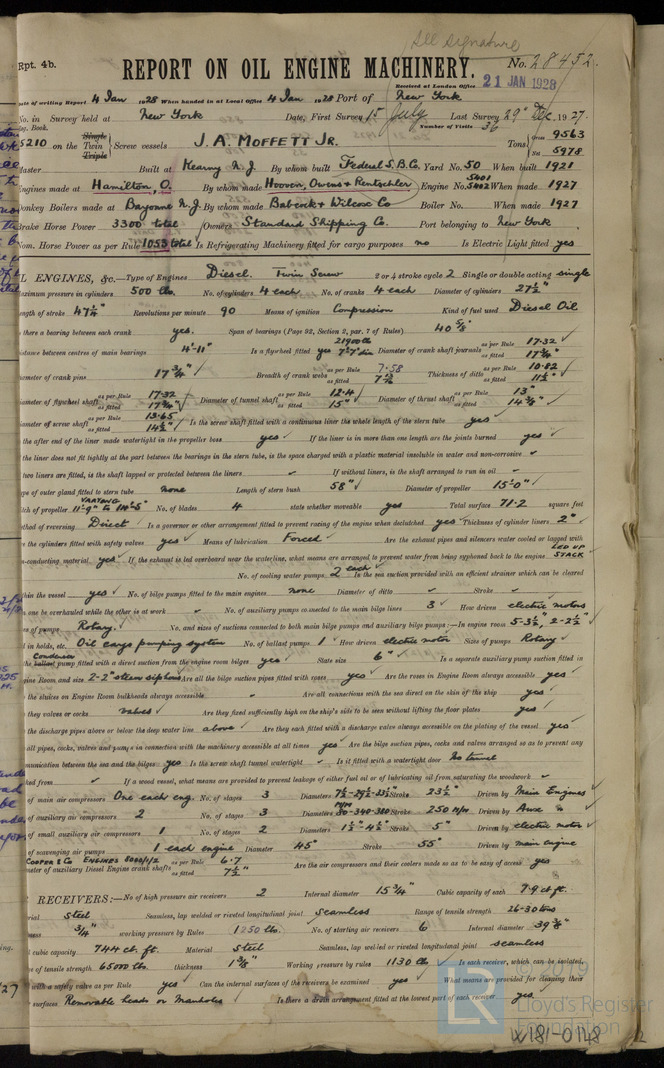 See signature
Rpt. 4b.
REPORT ON OIL ENGINE MACHINERY.
No. 28452.
Received at London Office 21 JAN 1928
Date of writing Report 4 Jan 1928 When handed in at Local Office 4 Jan 1928 Port of New York
No. in Survey held at New York Date, First Survey 15 July Last Survey 29" Dec 1927.
Reg. Book. Number of Visits 36
5210 on the Single Twin Triple Screw vessels J. A. MOFFETT JR. Tons Gross 9563 Net 5978
Master Built at Kearny N.J. By whom built Federal S.B.Co. Yard No. 50 When built 1921
Engines made at Hamilton, O. By whom made Hooven, Owens & Rentschler Engine No. 5401 5402 When made 1927
Donkey Boilers made at Bayonne N.J. By whom made Babcock & Wilcox Co Boiler No. When made 1927
Brake Horse Power 3300 total Owners Standard Shipping Co. Port belonging to New York
Nom. Horse Power as per Rule 1053 total Is Refrigerating Machinery fitted for cargo purposes no Is Electric Light fitted yes
L ENGINES, &c.—Type of Engines Diesel. Twin Screw 2 or 4 stroke cycle 2 Single or double acting single
aximum pressure in cylinders 500 lbs. No. of cylinders 4 each No. of cranks 4 each Diameter of cylinders 27½"
ength of stroke 47¼" Revolutions per minute 90 Means of ignition Compression Kind of fuel used Diesel Oil
s there a bearing between each crank yes. Span of bearings (Page 92, Section 2, par. 7 of Rules) 40 5/8
istance between centres of main bearings 4'-11" Is a flywheel fitted yes 21900 lb Diameter of crank shaft journals as per Rule 17.32 as fitted 17¾"
iameter of crank pins 17¾" Breadth of crank webs as per Rule 7.58 as fitted Thickness of ditto as per Rule 10.82 as fitted 11½"
iameter of flywheel shaft as per Rule 17.32 as fitted 17¾" Diameter of tunnel shaft as per Rule 12.4 as fitted 15" Diameter of thrust shaft as per Rule 13" as fitted 14¾"
iameter of screw shaft as per Rule 13.65 as fitted 14½" Is the screw shaft fitted with a continuous liner the whole length of the stern tube yes
the after end of the liner made watertight in the propeller boss yes If the liner is in more than one length are the joints burned yes
the liner does not fit tightly at the part between the bearings in the stern tube, is the space charged with a plastic material insoluble in water and non-corrosive
two liners are fitted, is the shaft lapped or protected between the liners If without liners, is the shaft arranged to run in oil
pe of outer gland fitted to stern tube none Length of stern bush 58" Diameter of propeller 15'-0"
tch of propeller VARYING 11'-9" to 114'-5" No. of blades 4 state whether moveable yes Total surface 71.2 square feet
thod of reversing Direct Is a governor or other arrangement fitted to prevent racing of the engine when declutched yes Thickness of cylinder liners 2"
e the cylinders fitted with safety valves yes Means of lubrication Forced Are the exhaust pipes and silencers water cooled or lagged with
n-conducting material yes If the exhaust is led overboard near the waterline, what means are arranged to prevent water from being syphoned back to the engine LED UP STACK
No. of cooling water pumps 2 each Is the sea suction provided with an efficient strainer which can be cleared
thin the vessel yes No. of bilge pumps fitted to the main engines none Diameter of ditto Stroke
n one be overhauled while the other is at work No. of auxiliary pumps connected to the main bilge lines 3 How driven electric motors
es of pumps Rotary. No. and sizes of suctions connected to both main bilge pumps and auxiliary bilge pumps:—In engine room 5-3½", 2-2½"
d in holds, etc. Oil cargo pumping system No. of ballast pumps 1 How driven electric motor Sizes of pumps Rotary
the Condenser ballast pump fitted with a direct suction from the engine room bilges yes State size 6" Is a separate auxiliary pump suction fitted in
gine Room and size 2-2" steam siphons Are all the bilge suction pipes fitted with roses yes Are the roses in Engine Room always accessible yes
the sluices on Engine Room bulkheads always accessible Are all connections with the sea direct on the skin of the ship yes
they valves or cocks valves Are they fixed sufficiently high on the ship's side to be seen without lifting the floor plates yes
the discharge pipes above or below the deep water line above Are they each fitted with a discharge valve always accessible on the plating of the vessel yes
all pipes, cocks, valves and pumps in connection with the machinery accessible at all times yes Are the bilge suction pipes, cocks and valves arranged so as to prevent any
mmunication between the sea and the bilges yes Is the screw shaft tunnel watertight Is it fitted with a watertight door No tunnel
ked from If a wood vessel, what means are provided to prevent leakage of either fuel oil or of lubricating oil from saturating the woodwork
of main air compressors One each eng. No. of stages 3 Diameters Stroke 23½" Driven by Main Engines
of auxiliary air compressors 2 No. of stages 3 Diameters M/M 80-340-380 Stroke 250 M/M Driven by Aux "
of small auxiliary air compressors 1 No. of stages 2 Diameters 1½"-4½" Stroke 5" Driven by electric motor
of scavenging air pumps 1 each engine Diameter 45" Stroke 55" Driven by main engine
COOPER & Co ENGINES
meter of auxiliary Diesel Engine crank shafts as per Rule 6.7 as fitted 7½" Are the air compressors and their coolers made so as to be easy of access yes
RECEIVERS:—No. of high pressure air receivers 2 Internal diameter 15¾" Cubic capacity of each 7.9 ct ft.
rial steel Seamless, lap welded or riveted longitudinal joint Seamless Range of tensile strength 26-30 tons
ness ¾" working pressure by Rules 1250 lbs. No. of starting air receivers 6 Internal diameter 39 3/8"
l cubic capacity 744 ct. ft. Material Steel Seamless, lap welded or riveted longitudinal joint seamless
e of tensile strength 65000 lbs. thickness 1 3/8" Working pressure by rules 1130 lb Is each receiver, which can be isolated,
with a safety valve as per Rule yes Can the internal surfaces of the receivers be examined yes What means are provided for cleaning their
surfaces Removable heads or Manholes Is there a drain arrangement fitted at the lowest part of each receiver yes
© 2019
Lloyd's Register
Foundation
W181-0148